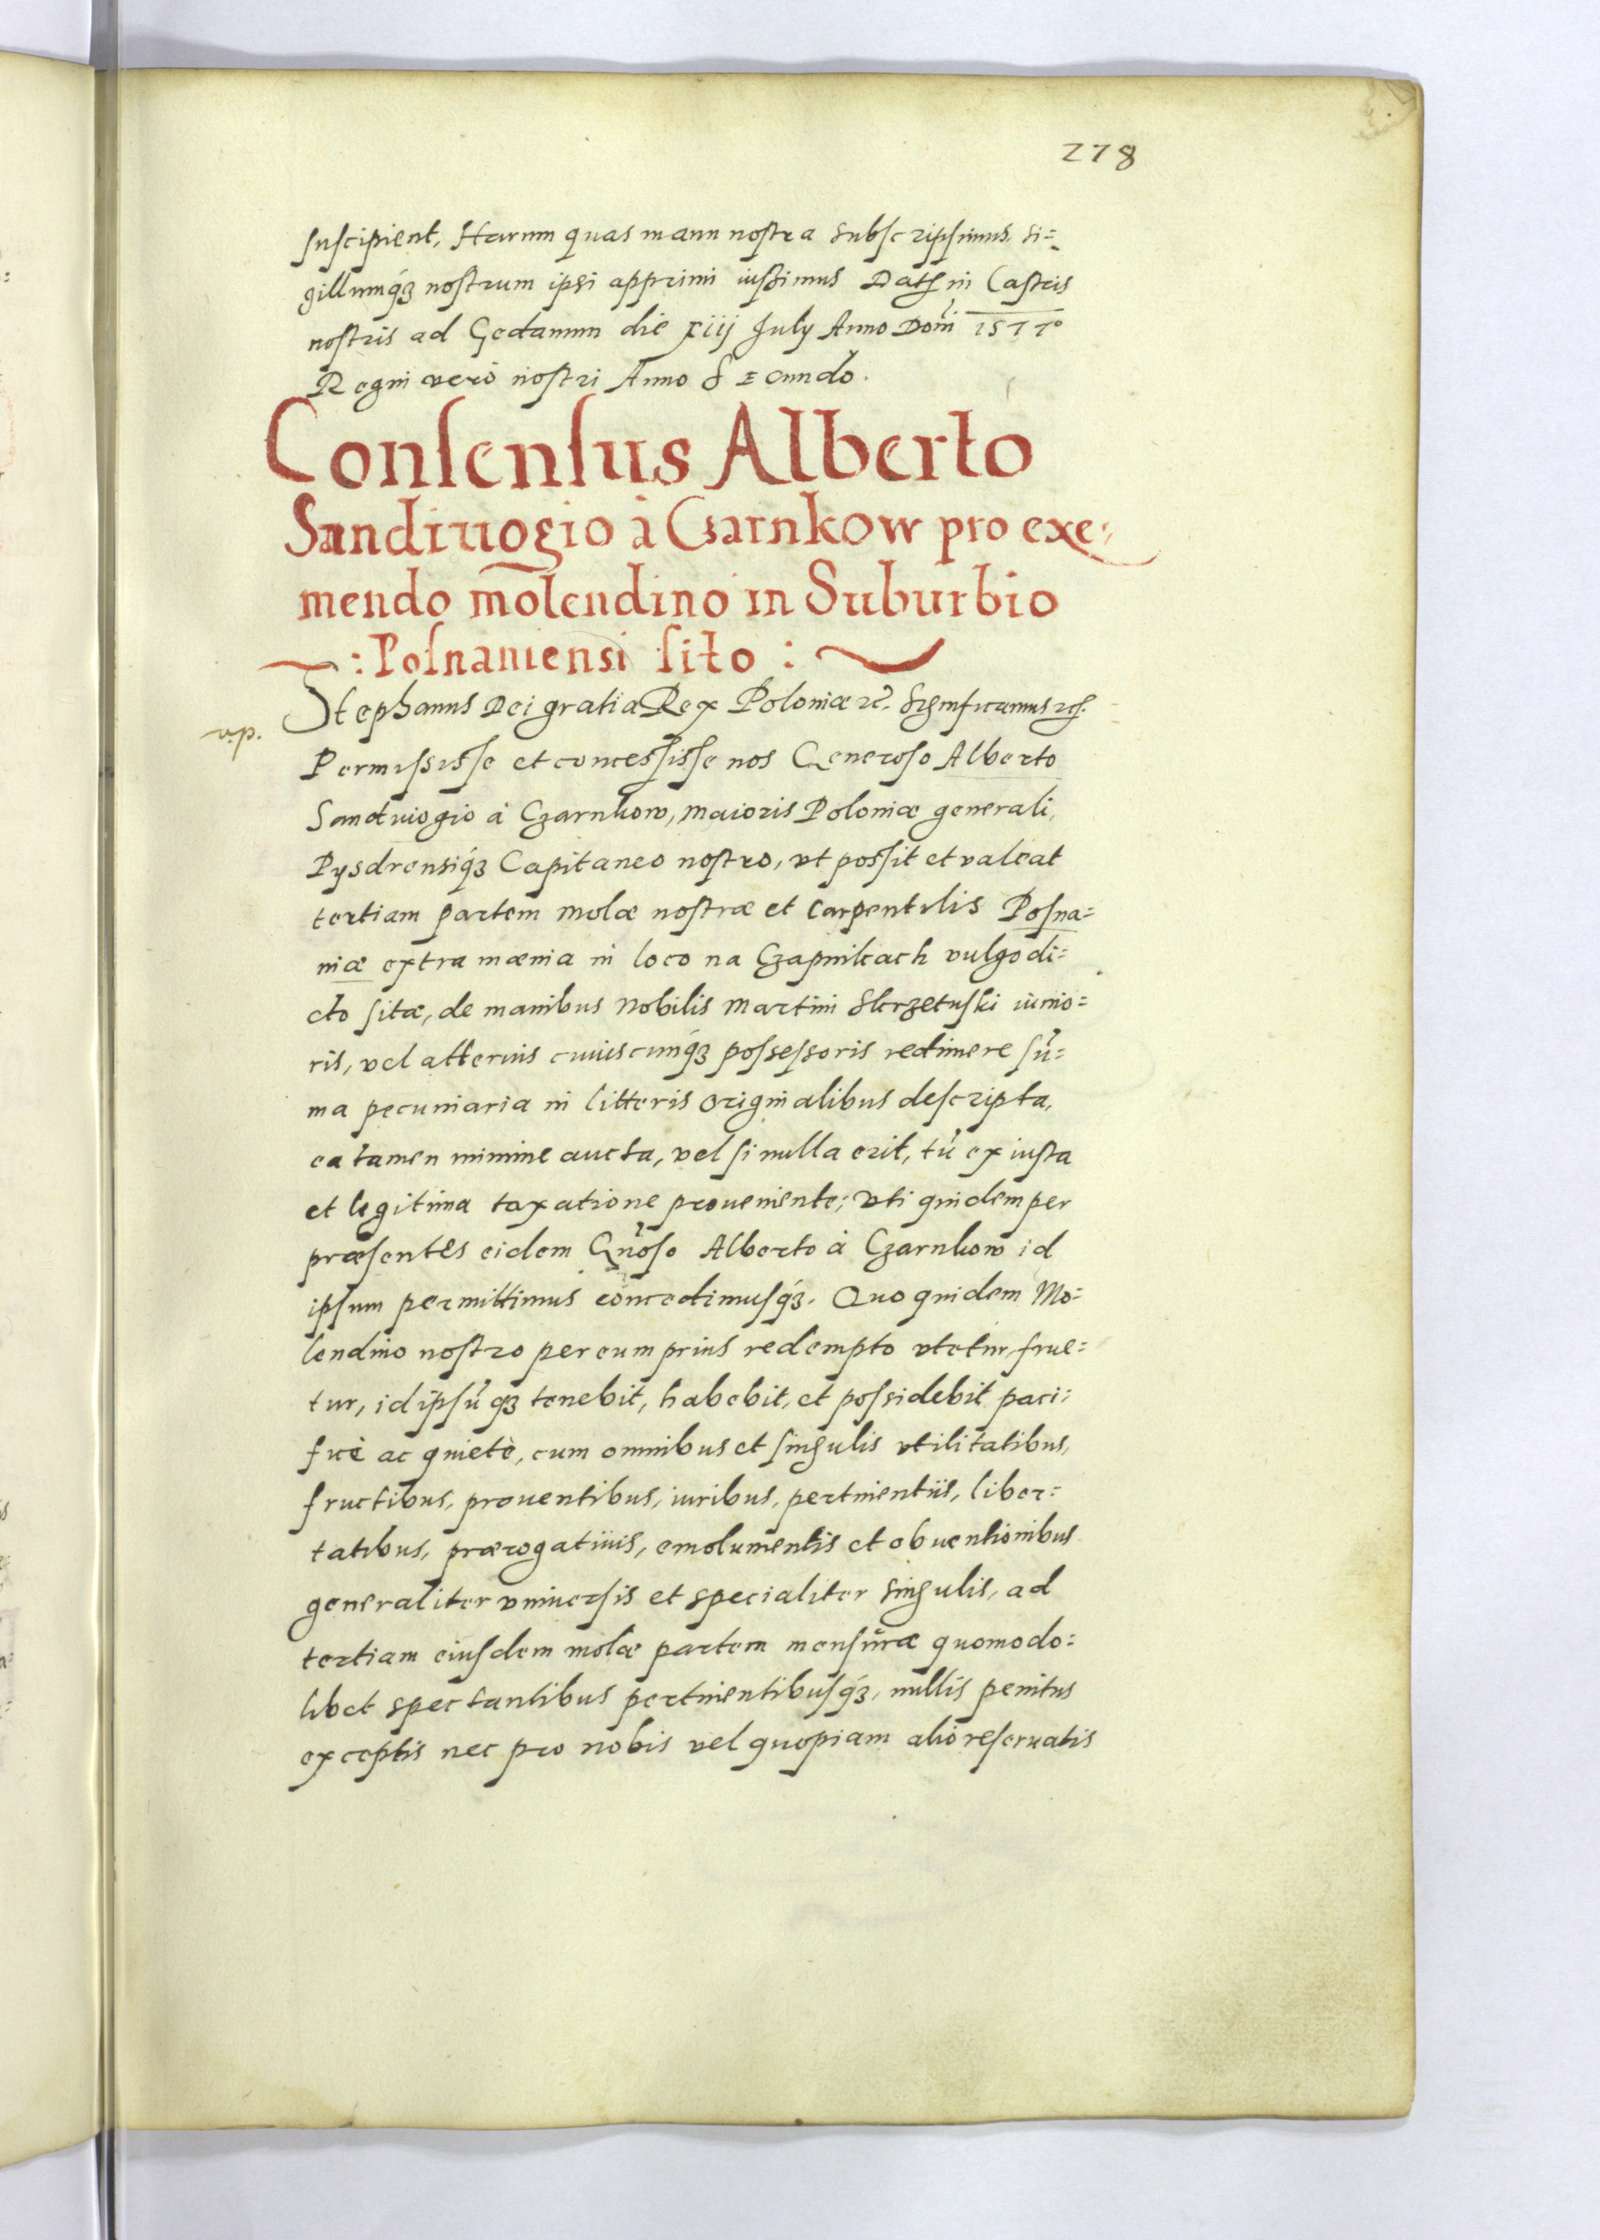 278
suscipient, Harum quas manu nostra subscripsimus, si=
gillumq́ꝫ nostrum ipsi apprimi iussimus Datꝭ in Castris
nostris ad Gedanum die xiij July Anno Domĩ 1577º
Regni verò nostri Anno Secundo.
Consensus Alberto
Sandiuogio à Czarnkow pro exe=
mendo molendino in Suburbio
: Posnaniensi sito :
v.p.
Stephanus Dei gratia Rex Poloniæ &c. Significamus &c.
Permississe et concessisse nos Generoso Alberto
Sandiuogio à Czarnkow, Maioris Poloniæ generali,
Pysdrensiq́ꝫ Capitaneo nostro, vt possit et valeat
tertiam partem molæ nostræ et carpentilis Posna=
niæ extra mænia in loco na Czapnikach vulgo di=
cto sitæ, de manibus Nobilis Martini Skrzetuski iunio=
ris, vel alterius cuiuscunq́ꝫ possessoris redimere sũ=
ma pecuniaria in litteris originalibus descripta,
ea tamen minime aucta, vel si nulla erit, tũ ex iusta
et legitima taxatione proueniente; vti quidem per
præsentes eidem Gñoso Alberto à Czarnkow id
ipsum permittimus concedimusq́ꝫ. Quo quidem Mo=
lendino nostro per eum prius redempto vtetur, frue=
tur, id ipsũqꝫ tenebit, habebit, et possidebit paci=
ficè ac quietè, cum omnibus et singulis vtilitatibus,
fructibus, prouentibus, iuribus, pertinentiis, liber=
tatibus, prærogatiuis, emolumentis et obuentionibus
generaliter vniuersis et specialiter singulis, ad
tertiam eiusdem molæ partem mensuræ quomodo=
libet spectantibus pertinentibusq́ꝫ, nullis penitus
exceptis nec pro nobis vel quopiam alio reseruatis